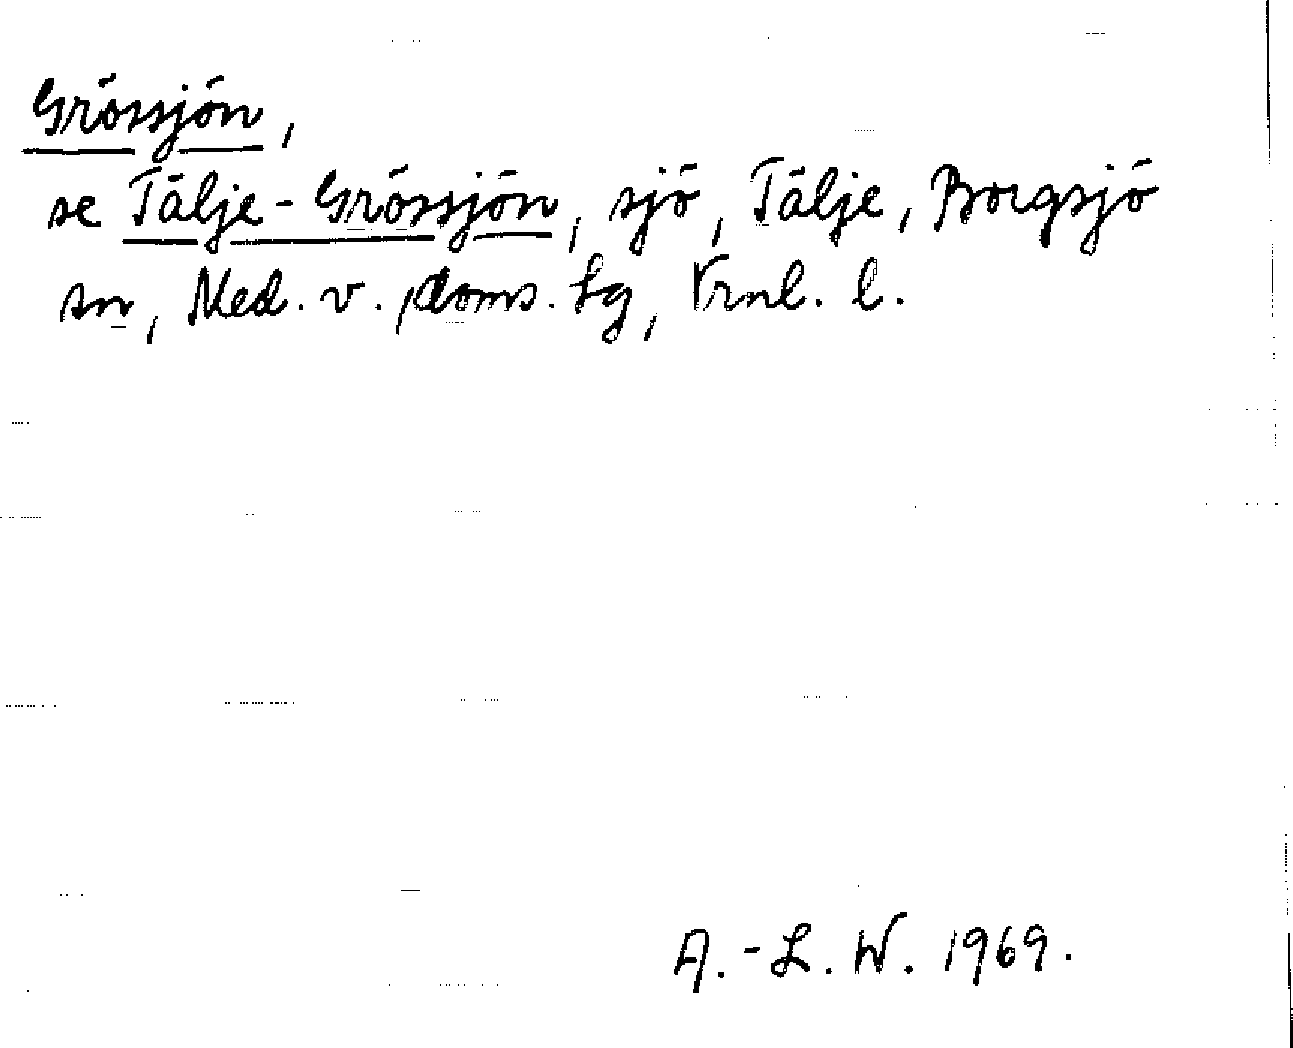 Grössjön,
se Tälje-Grössjön, sjö, Tälje, Borgsjö
sn, Med. v. doms. tg, Vrnl. l.
A.-L. W. 1969.